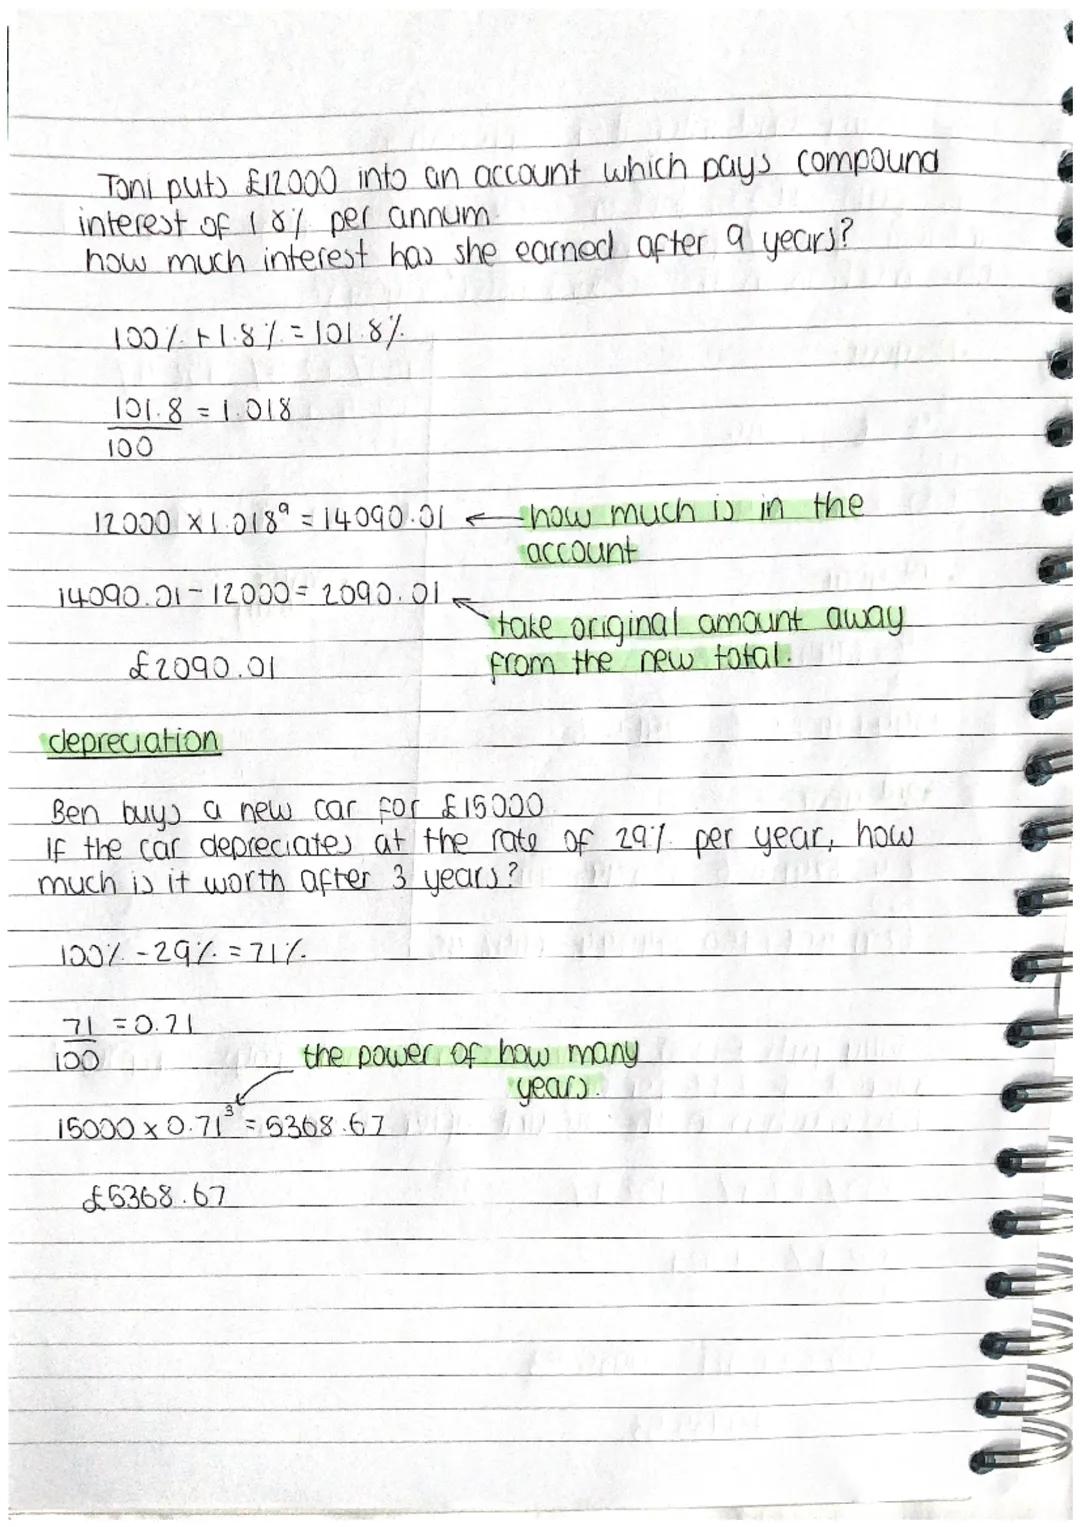 Toni puts £12000 into an account which pays compound
interest of 1.8% per annum.
how much interest has she earned after 9 years?
100% + 1.8% = 101.8%
101.8 = 1.018
100
12000 x 1.018⁹ = 14090.01 ← how much is in the
account
14090.01 - 12000 = 2090.01
take original amount away
from the new total.
£2090.01
depreciation
Ben buys a new car for £15000
If the car depreciates at the rate of 29% per year, how
much is it worth after 3 years?
100% - 29% = 71%
71 = 0.71
100
the power of how many
years.
15000 x 0.71³ = 5368.67
£5368.67